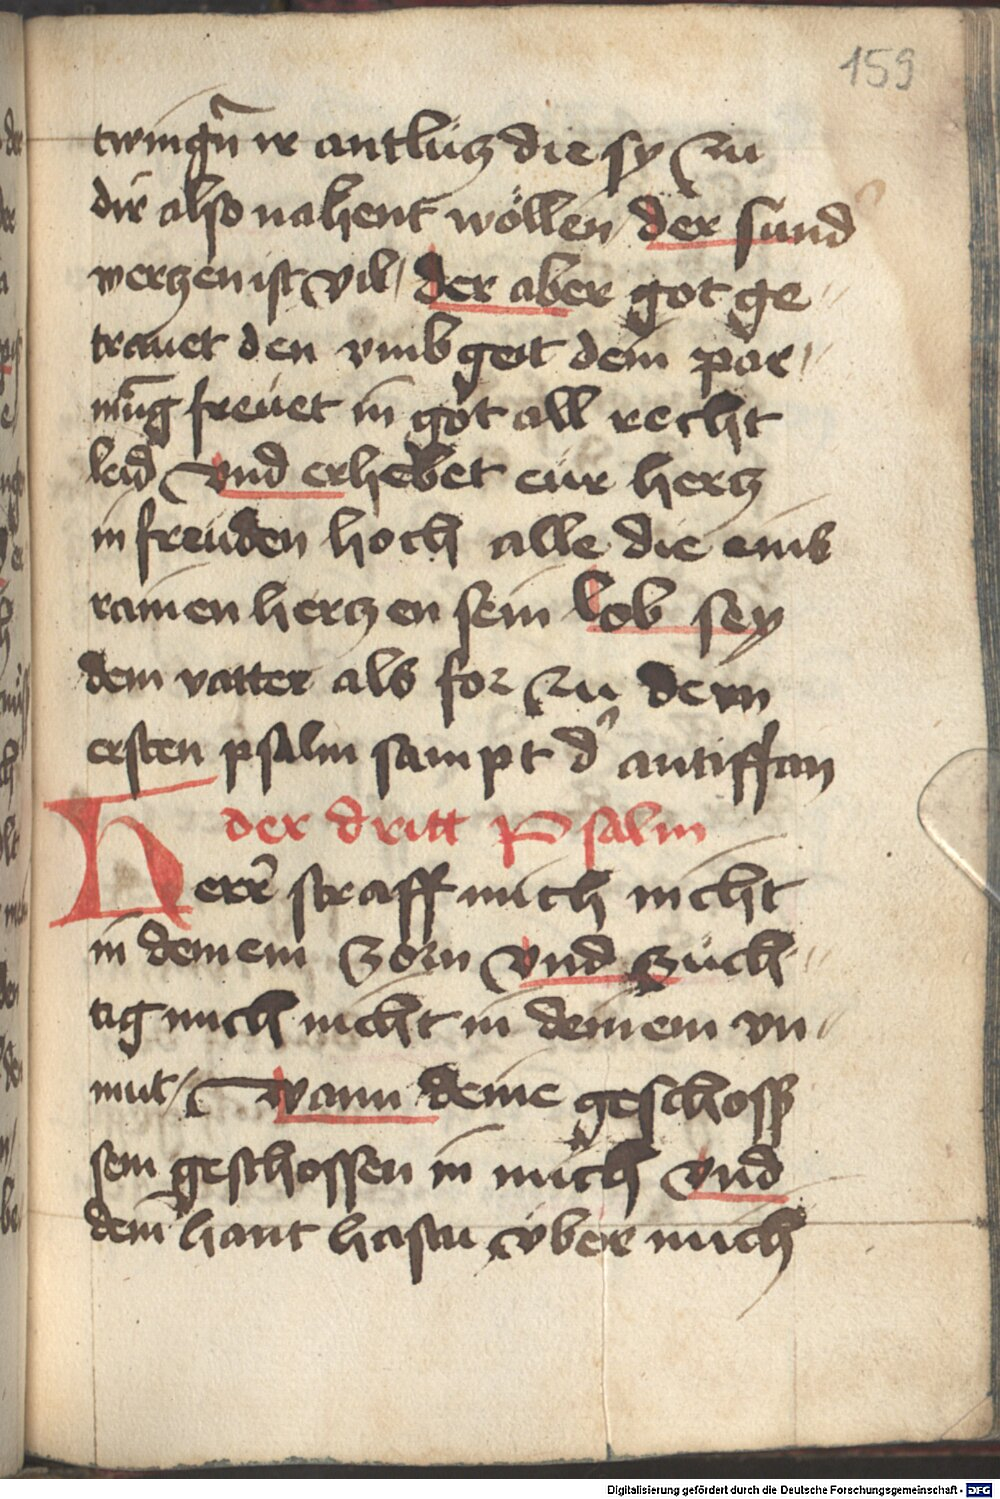 159
twingn̄ ir antlütz die sy zu
dir also nahent wöllen der sünd
wertzen ist vil / der aber got ge〃
trauet den vmb geit dein par〃
mūg freüet in got all recht
leid vnd erhebet eür hertz
in freüden hoch alle die ains
rainen hertzen sein lob sey
dem vatter als for zu dem
ersten psalm sampt d' antiffan
der dritt Psalm
Herr̄ straff mich nicht
in deinem zorn vnd züch〃
tig mich nicht in deinem vn〃
mut / wann deine geschoss
sein geschossen in mich vnd
dein hant hastu über mich
Digitalisierung gefördert durch die Deutsche Forschungsgemeinschaft - DFG